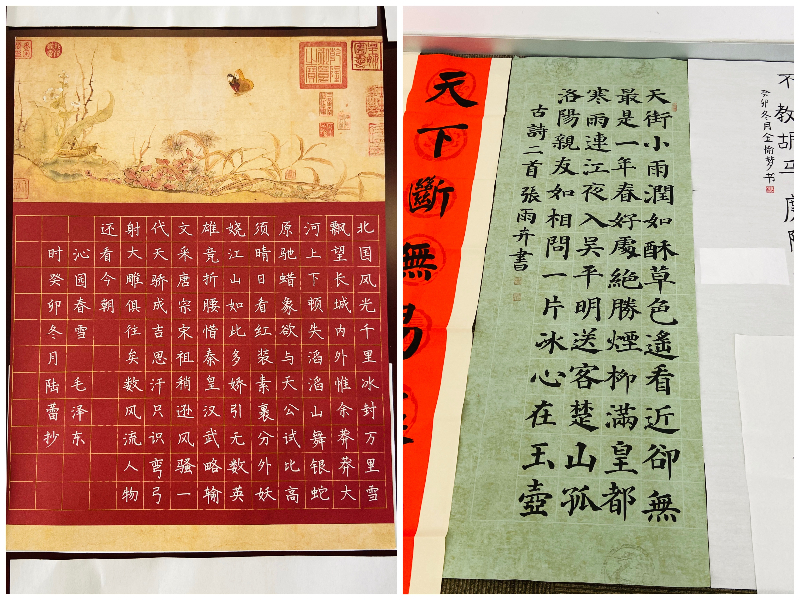 北国风光千里冰封万里雪
飘望长城内外惟余莽莽大
河上下顿失滔滔山舞银蛇
原驰蜡象欲与天公试比高
须晴日看红装素裹分外妖
娆江山如此多娇引无数英
雄竟折腰惜秦皇汉武略输
文采唐宗宋祖稍逊风骚一
代天骄成吉思汗只识弯弓
射大雕俱往矣数风流人物
还看今朝
沁园春雪 毛泽东
时癸卯冬月陆蕾抄
不教胡马度
癸卯冬月金
天街小雨潤如酥草色遙看近卻無
最是一年春好處絕勝煙柳滿皇都
寒雨連江夜入吳平明送客楚山孤
洛陽親友如相問一片冰心在玉壺
古詩二首張雨卉書
天下斷無易